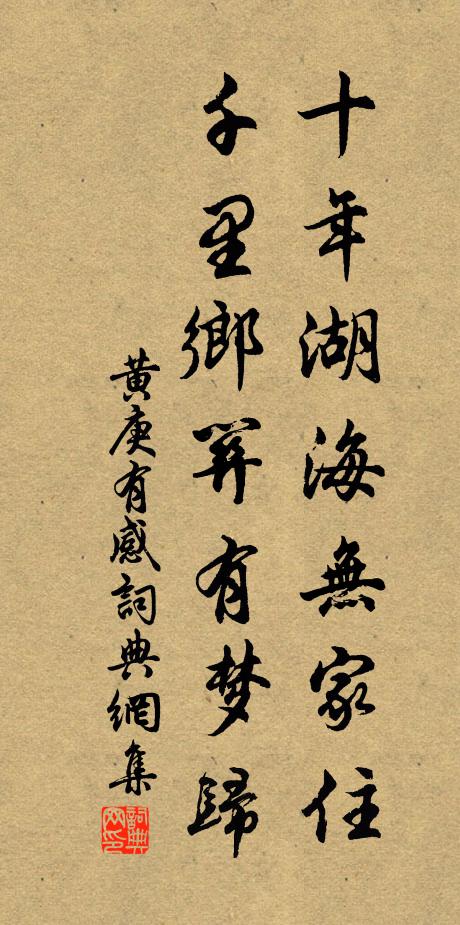 十年湖海無家住
千里鄉關有梦歸
黃庚有感詞典網集
詞典網印